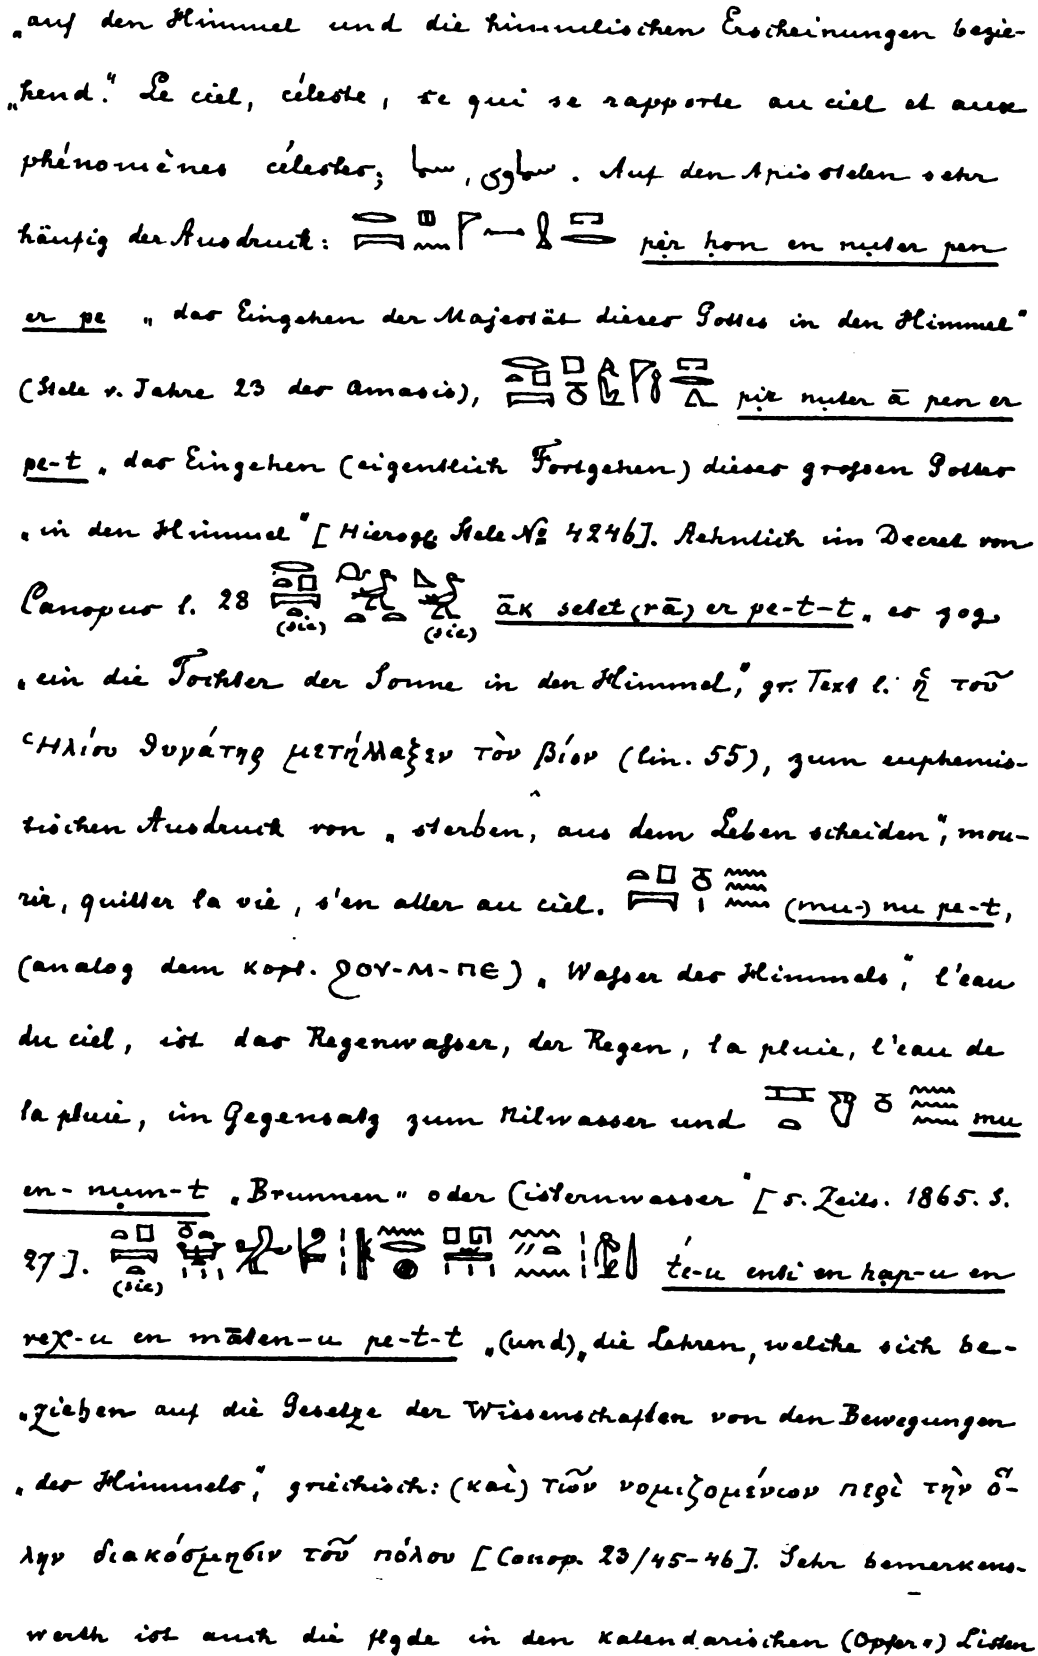 „auf den Himmel und die himmlischen Erscheinungen bezie-
„hend.“ Le ciel, céleste, ce qui se rapporte au ciel et aux
phénomènes célestes; سما, سماوى. Auf den Apisstelen sehr
häufig der Ausdruck: pi̤r ḥon en nuter pen
er pe „das Eingehen der Majestät dieses Gottes in den Himmel“
(Stele v. Jahre 23 des Amasis), pi̤r nuter ā pen er
pe-t „das Eingehen (eigentlich Fortgehen) dieses großen Gottes
„in den Himmel“ [Hierogl. Stele № 4246]. Aehnlich im Decret von
Canopus l. 28 (sic) (sic) āk setet (rā) er pe-t-t „es zog
„ein die Tochter der Sonne in den Himmel“, gr. Text l. ἡ τοῦ
Ἡλίου θυγάτης μετήλλαξεν τὸν βίον (lin. 55), zum euphemis-
tischen Ausdruck von „sterben, aus dem Leben scheiden“, mou-
rir, quitter la vie, s'en aller au ciel. (mu-) nu pe-t,
(analog dem kopt. ϩΟΥ-Μ-ΠΕ) „Waſser des Himmels“, l'eau
du ciel, ist das Regenwaſser, der Regen, la pluie, l'eau de
la pluie, im Gegensatz zum Nilwasser und mu
en-num-t „Brunnen“ oder Cisternwasser“ [s. Zeits. 1865. S.
27]. (sic) té-u enti en hap-u en
reχ-u en māten-u pe-t-t „(und) „die Lehren, welche sich be-
„ziehen auf die Gesetze der Wissenschaften von den Bewegungen
„des Himmels“, griechisch: (καὶ) τῶν νομιζομένων περὶ τὴν ὅ-
λην διακόσμησιν τοῦ πόλου [Canop. 23/45-46]. Sehr bemerkens-
werth ist auch die flgde in den kalendarischen (Opfer-) Listen